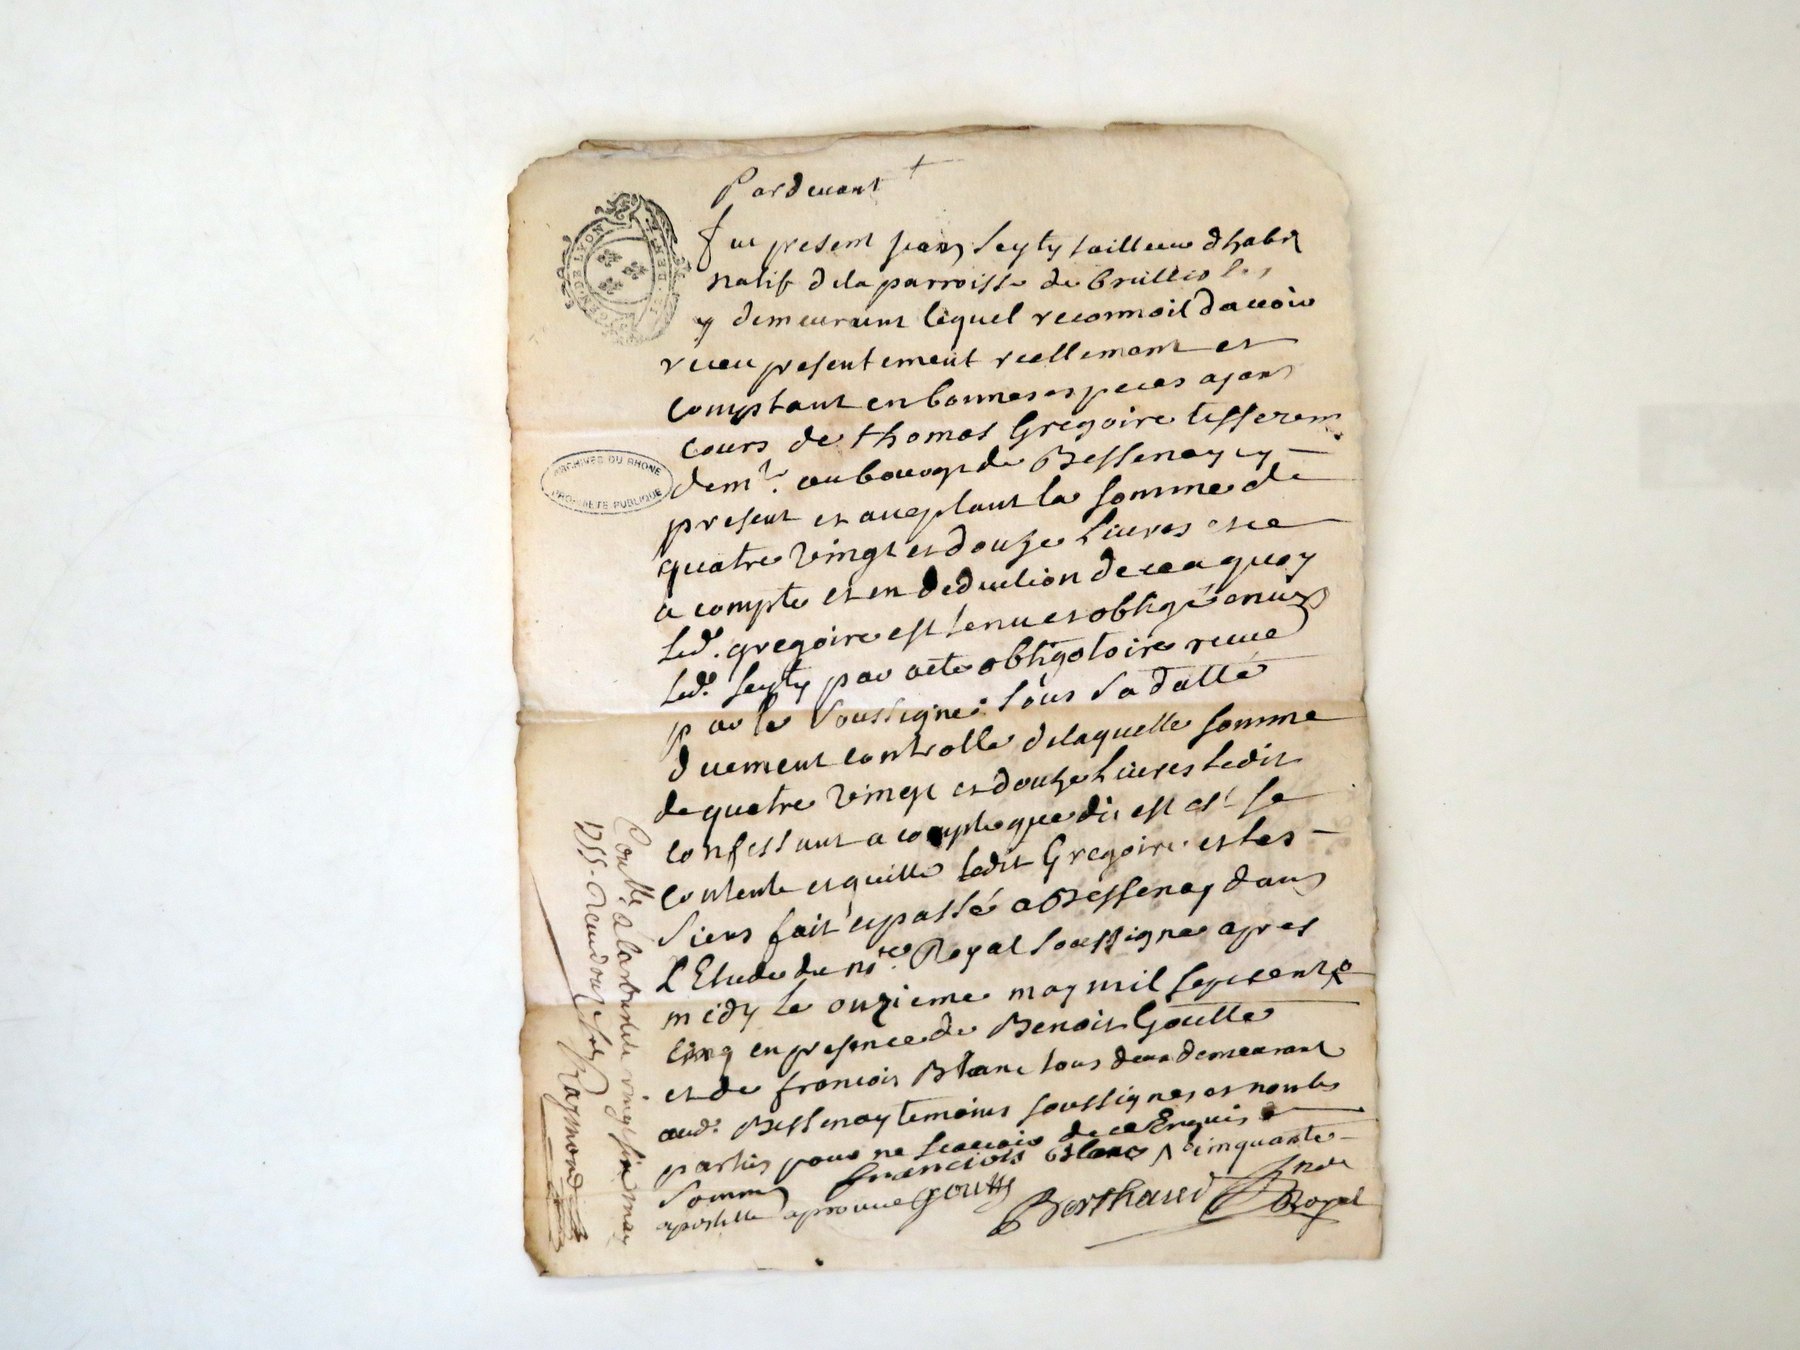 Pardeuant +
Fut present jean Seyty tailleur dhabit
natif dela parroisse de brullioles
y demeurant lequel reconnoit dauoir
receu presentement reellemant et
comptant en bonnes especes ayant
cours de thomas Gregoire tisseran
demt. au bourg de Bessenay cy
present et aceptant la somme de
quatre vingt et douze Liures et ce
a compte et en deduction de ce a quoy
led. gregoire est tenu et obligé enuers
led. Seyty par acte obligatoire receu
par le soussigné sous sa datte
duement controllé delaquelle somme
de quatre vingt et douze Liures ledit
confessant a compte que dit est se
contente et quitte ledit Gregoire et les
siens fait et passé a Bessenay dans
L'Etude du nre. Royal soussigné apres
midy le onzieme may mil sept cent
cinq en presence de Benoit Goutte
et de francois Blanc tous deux demeurant
aud. Bessenay temoins soussignes et non les
parties pour ne scauoir de ce Enquis et
sommés francois blanc cinquante
apostille aprouué goutte
Berthaud Nre Royal
Conlle. a larbresle vingt six may
1755. Receu douze sols
Raymond
GEN. DE LYON
ARCHIVES DU RHONE
PROPRIETE PUBLIQUE